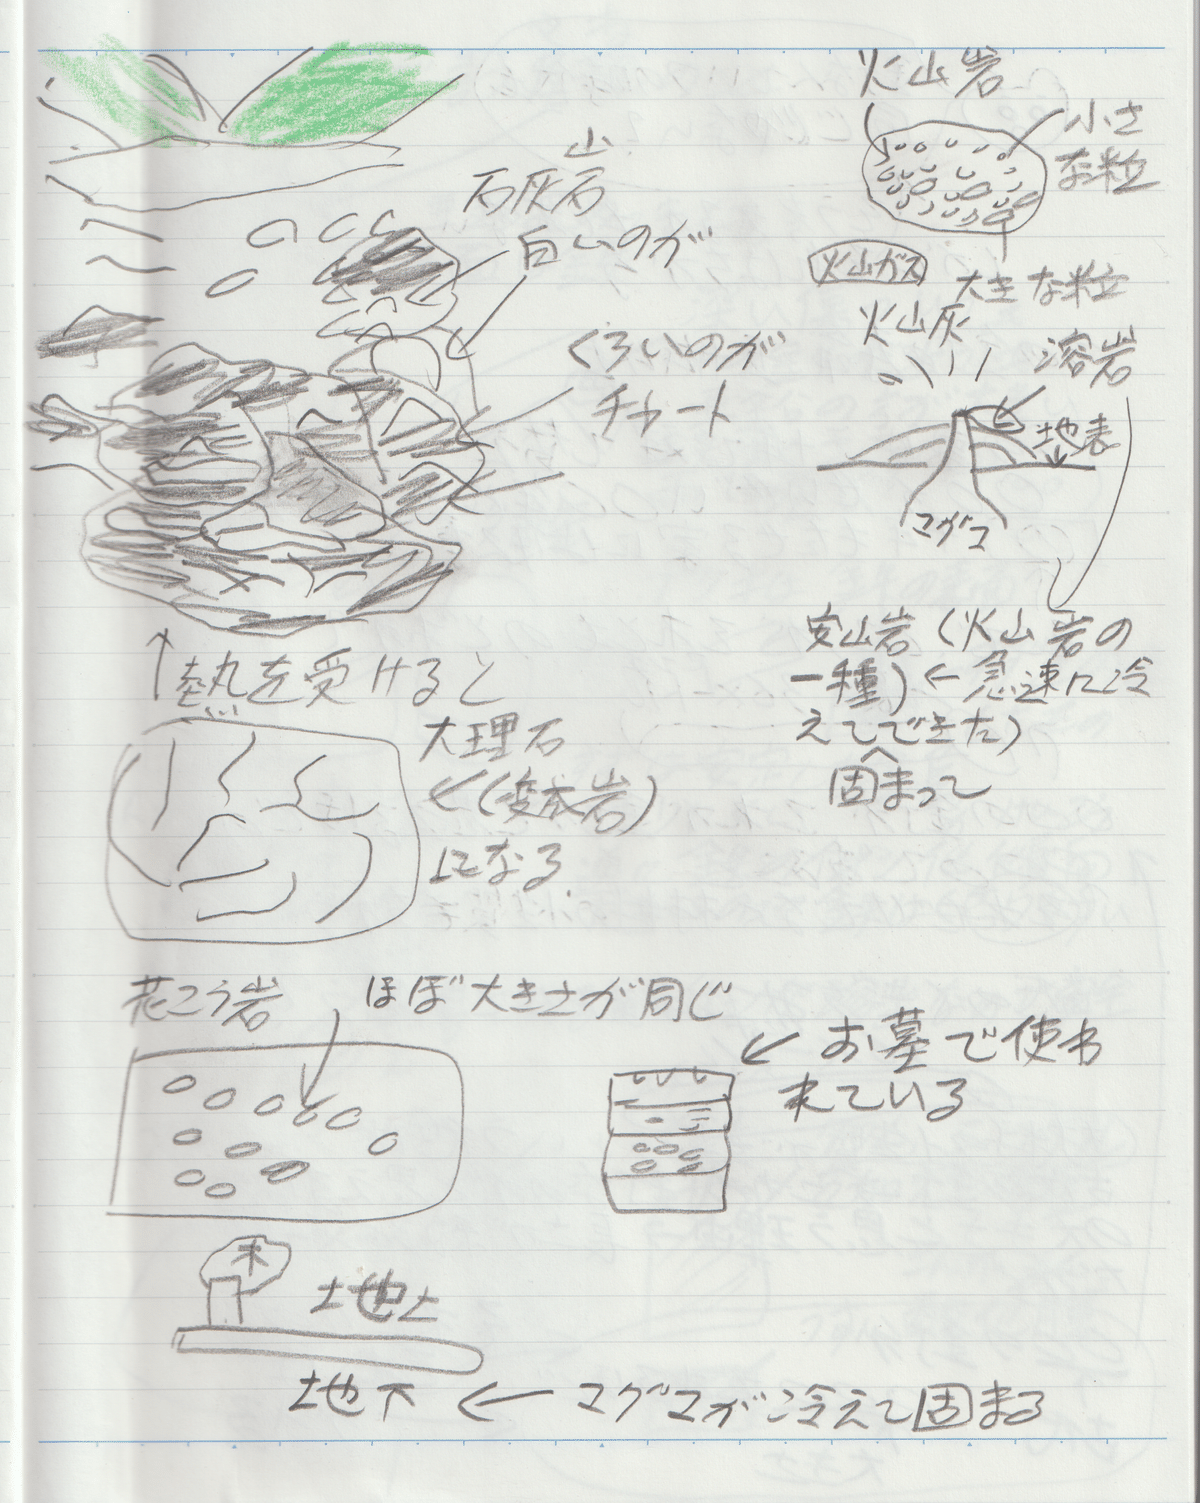 火山岩
小さ
な粒
大きな粒
火山ガス
火山灰
溶岩
地表
マグマ
安山岩(火山岩の
一種)←急速に冷
えてできた)
固まって
山
石灰石
白いのが
くろいのが
チャート
↑熱を受けると
大理石
←(変成岩)
になる.
花こう岩
ほぼ大きさが同じ
←お墓で使わ
れている
木
地上
地下←マグマが冷えて固まる